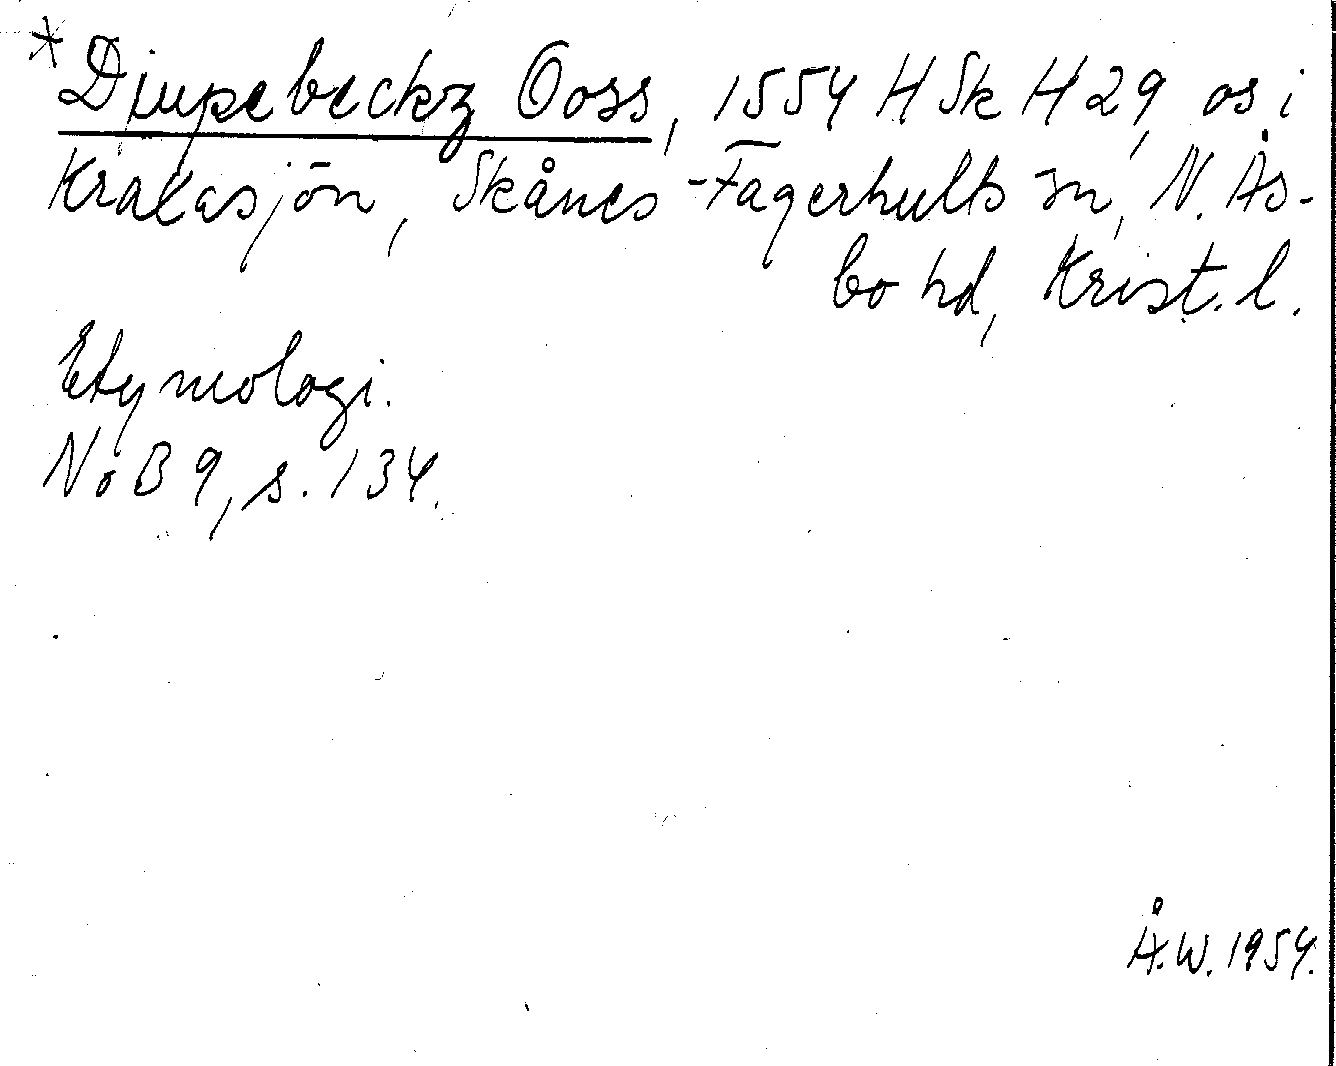 *Djupebeckz Ooss, 1554 HSkH 29, os i
Krakasjön, Skånes-Fagerhults sn, N. Ås-
bo hd, Krist. l.
Etymologi.
NoB 9, s. 134.
Å.W. 1954.